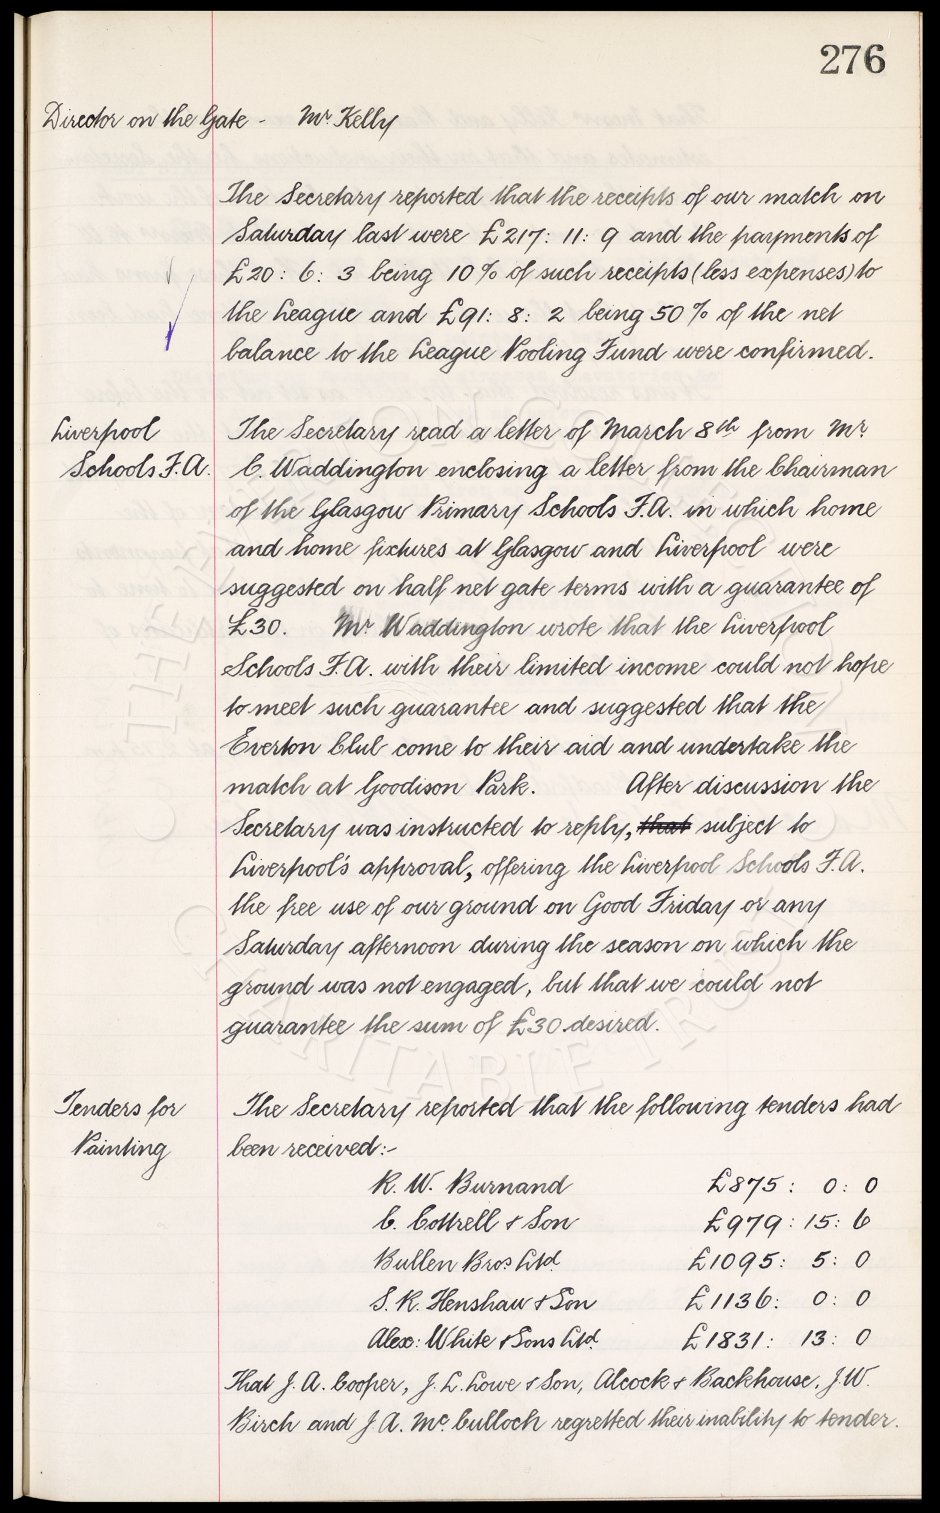 276
Director on the Gate - Mr Kelly
The Secretary reported that the receipts of our match on
Saturday last were £217: 11: 9 and the payments of
£20: 6: 3 being 10% of such receipts (less expenses) to
the League and £91: 8: 2 being 50% of the net
balance to the League Pooling Fund were confirmed.
Liverpool
Schools F.A.
The Secretary read a letter of March 8th from Mr.
C. Waddington enclosing a letter from the Chairman
of the Glasgow Primary Schools F.A. in which home
and home fixtures at Glasgow and Liverpool were
suggested on half net gate terms with a guarantee of
£30. Mr Waddington wrote that the Liverpool
Schools F.A. with their limited income could not hope
to meet such guarantee and suggested that the
Everton Club come to their aid and undertake the
match at Goodison Park. After discussion the
Secretary was instructed to reply, that subject to
Liverpool's approval, offering the Liverpool Schools F.A.
the free use of our ground on Good Friday or any
Saturday afternoon during the season on which the
ground was not engaged, but that we could not
guarantee the sum of £30 desired.
Tenders for
Painting
The Secretary reported that the following tenders had
been received:-
R. W. Burnand £875: 0: 0
C. Cottrell & Son £979: 15: 6
Bullen Bros Ltd. £1095: 5: 0
S. R. Henshaw & Son £1136: 0: 0
Alex: White & Sons Ltd. £1831: 13: 0
That J. A. Cooper, J. L. Lowe & Son, Alcock & Backhouse, J. W.
Birch and J A. Mc. Culloch regretted their inability to tender.
THE EVERTON COLLECTION
CHARITABLE TRUST